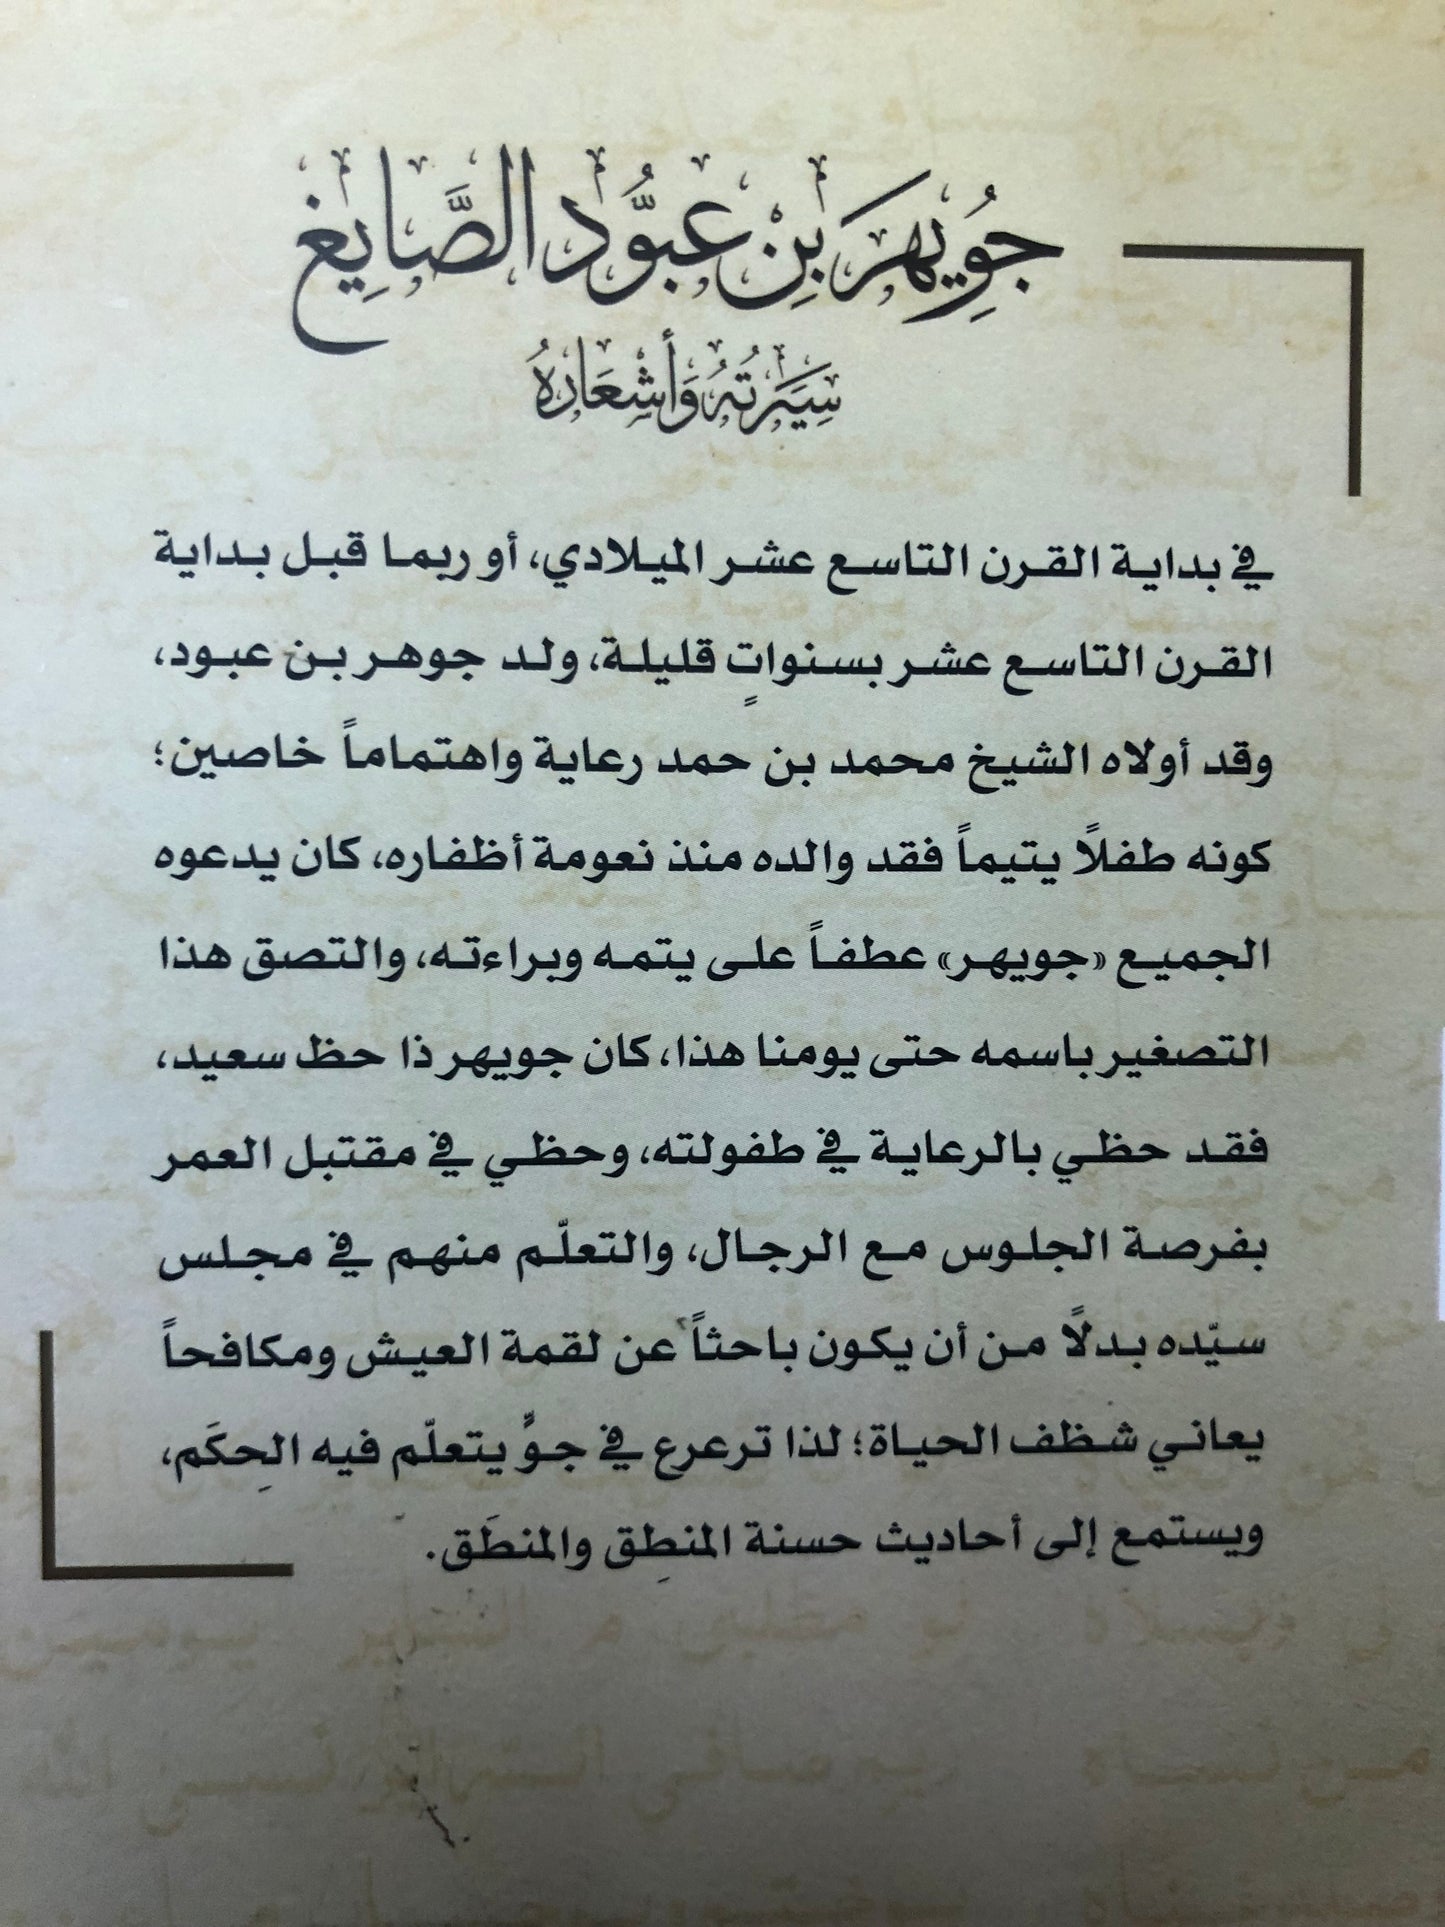 جُوِيهَر بِنْ عبُّود الصَّايِغ
سِيَرتُهُ وَأَشْعَارهُ
في بداية القرن التاسع عشر الميلادي، أو ربما قبل بداية
القرن التاسع عشر بسنواتٍ قليلة، ولد جوهر بن عبود،
وقد أولاه الشيخ محمد بن حمد رعاية واهتماماً خاصين؛
كونه طفلاً يتيماً فقد والده منذ نعومة أظفاره، كان يدعوه
الجميع «جويهر» عطفاً على يتمه وبراءته، والتصق هذا
التصغير باسمه حتى يومنا هذا، كان جويهر ذا حظ سعيد،
فقد حظي بالرعاية في طفولته، وحظي في مقتبل العمر
بفرصة الجلوس مع الرجال، والتعلّم منهم في مجلس
سيّده بدلاً من أن يكون باحثاً عن لقمة العيش ومكافحاً
يعاني شظف الحياة؛ لذا ترعرع في جوٍّ يتعلّم فيه الحِكَم،
ويستمع إلى أحاديث حسنة المنطِق والمنطَق.